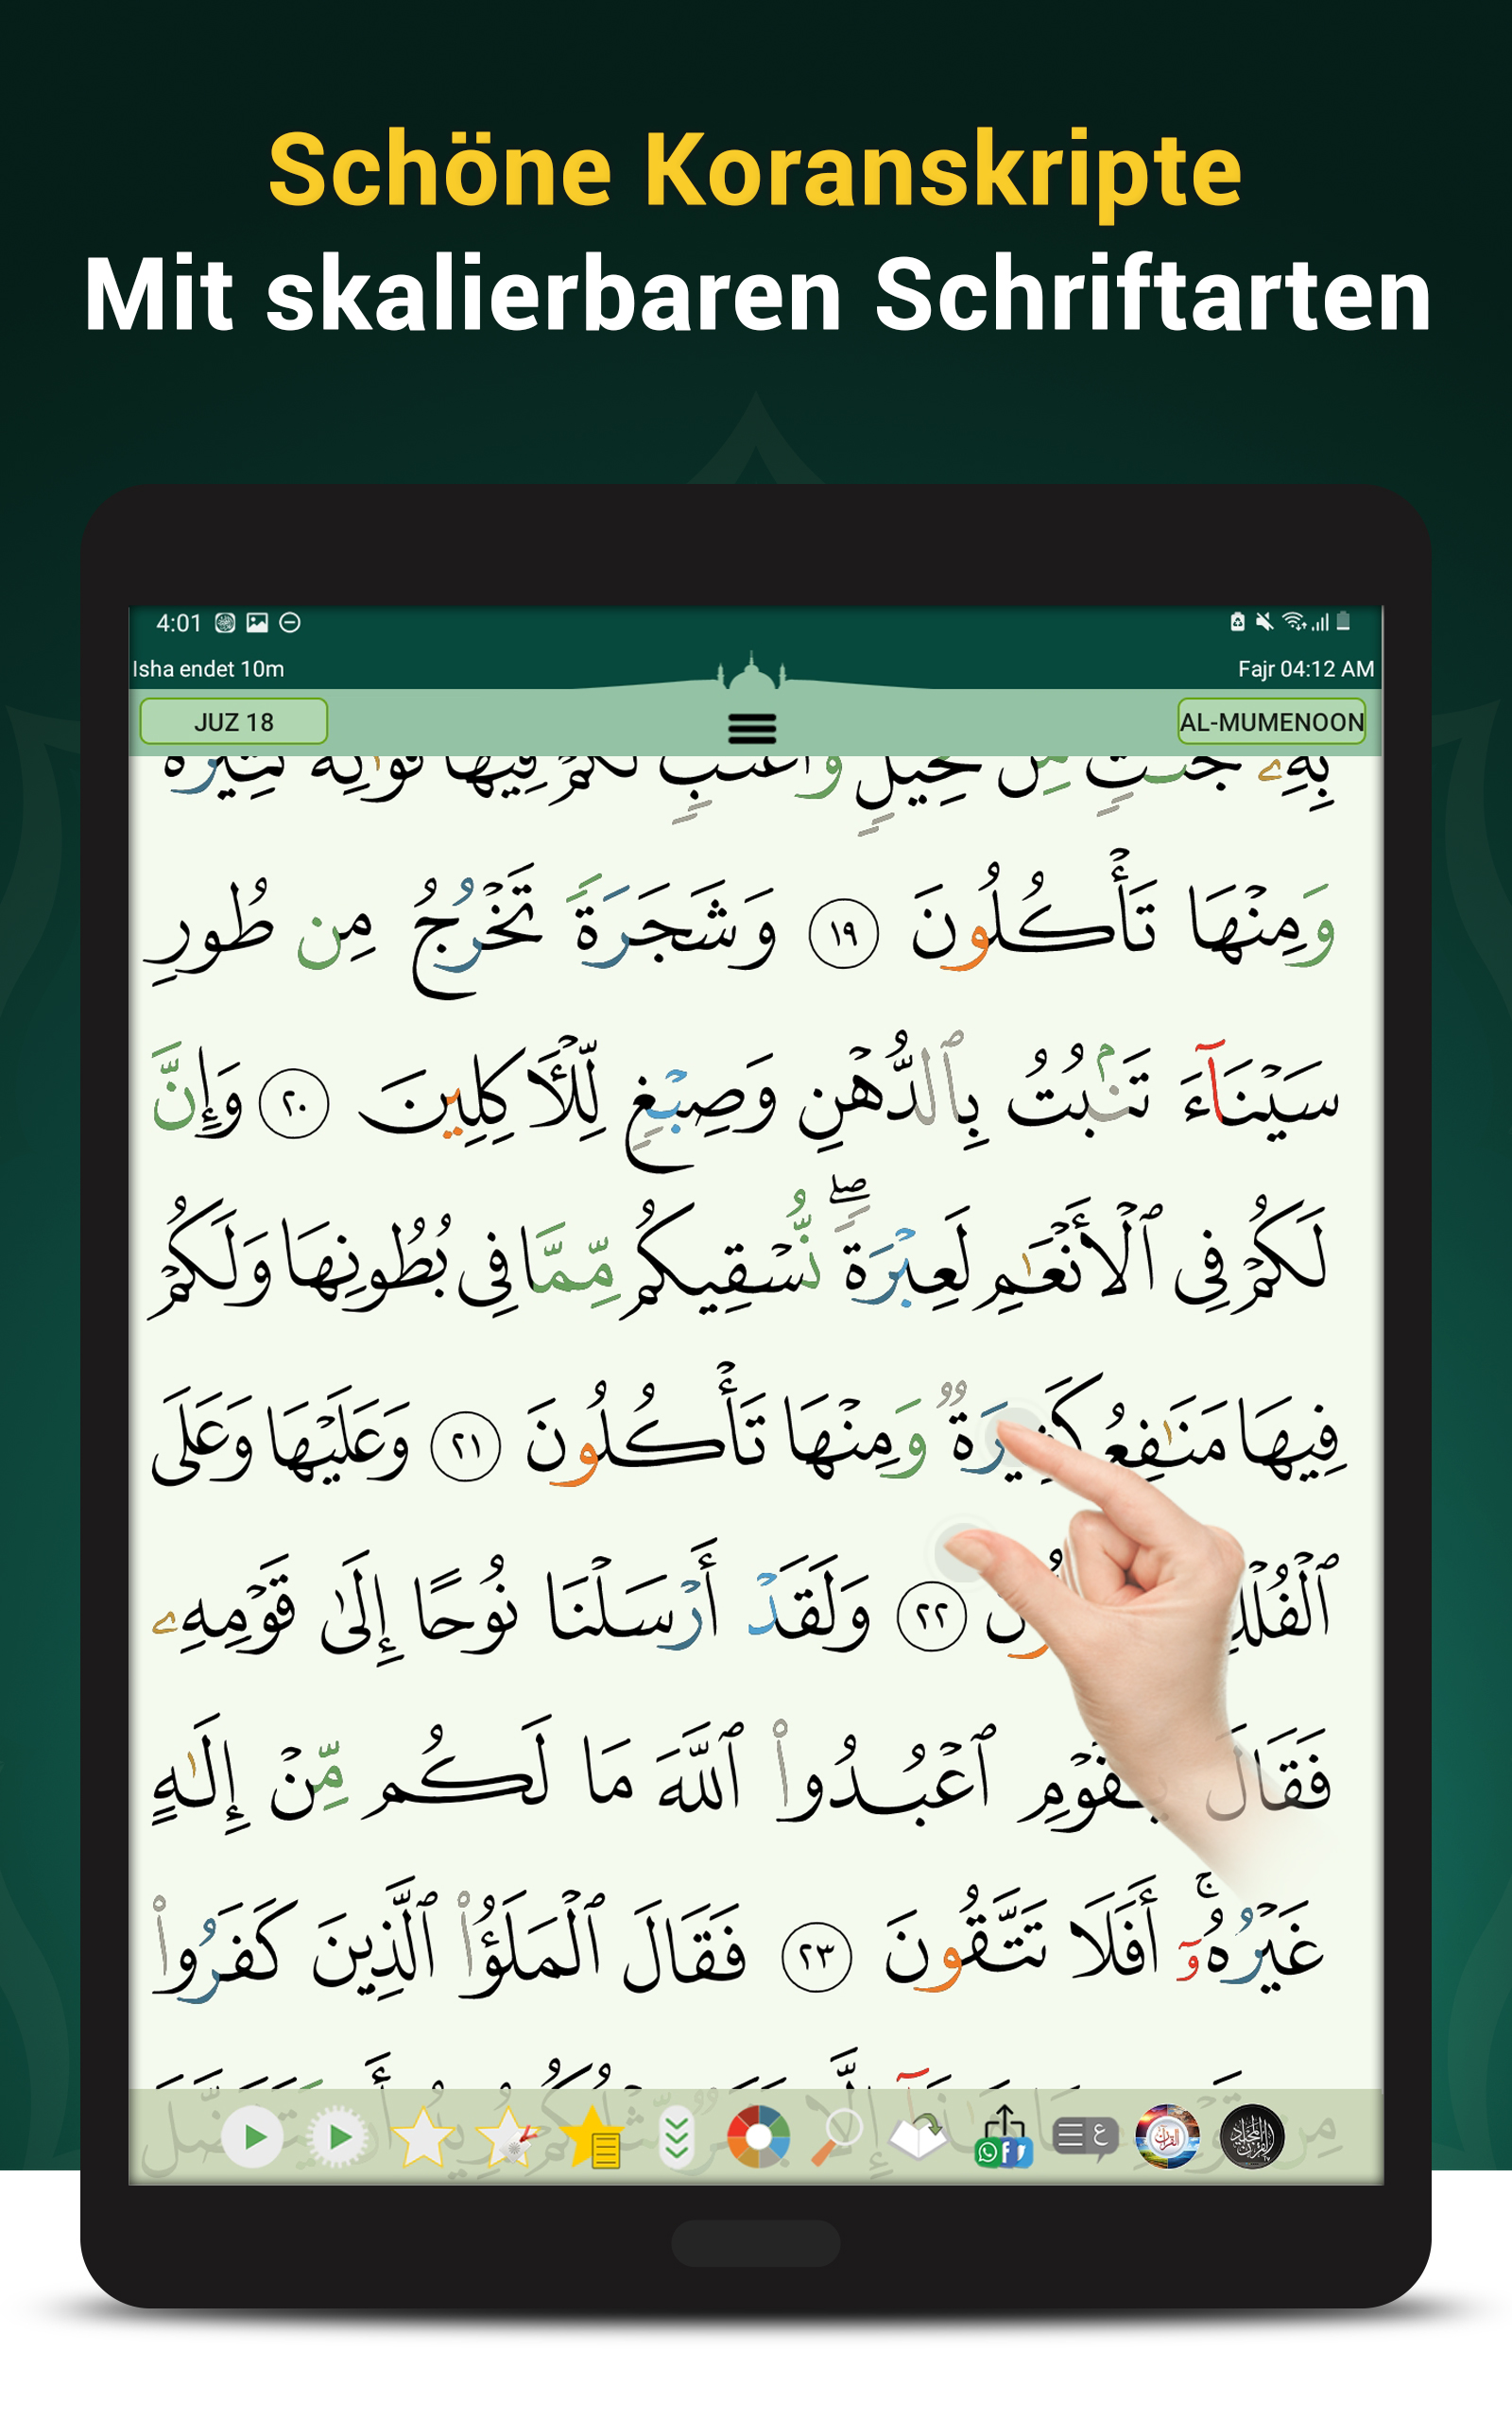 Schöne Koranskripte
Mit skalierbaren Schriftarten
4:01
Isha endet 10m
Fajr 04:12 AM
JUZ 18
AL-MUMENOON
وَمِنْهَا تَأْكُلُونَ ١٩ وَشَجَرَةً تَخْرُجُ مِن طُورِ
سَيْنَآءَ تَنۢبُتُ بِٱلدُّهْنِ وَصِبْغٍ لِّلْأَكِلِينَ ٢٠ وَإِنَّ
لَكُمْ فِى ٱلْأَنْعَـٰمِ لَعِبْرَةً ۖ نُّسْقِيكُم مِّمَّا فِى بُطُونِهَا وَلَكُمْ
فِيهَا مَنَـٰفِعُ كَثِيرَةٌ وَمِنْهَا تَأْكُلُونَ ٢١ وَعَلَيْهَا وَعَلَى
ٱلْفُلْكِ ٢٢ وَلَقَدْ أَرْسَلْنَا نُوحًا إِلَىٰ قَوْمِهِۦ
فَقَالَ يَـٰقَوْمِ ٱعْبُدُوا۟ ٱللَّهَ مَا لَكُم مِّنْ إِلَـٰهٍ
غَيْرُهُۥٓ ۚ أَفَلَا تَتَّقُونَ ٢٣ فَقَالَ ٱلْمَلَؤُا۟ ٱلَّذِينَ كَفَرُوا۟